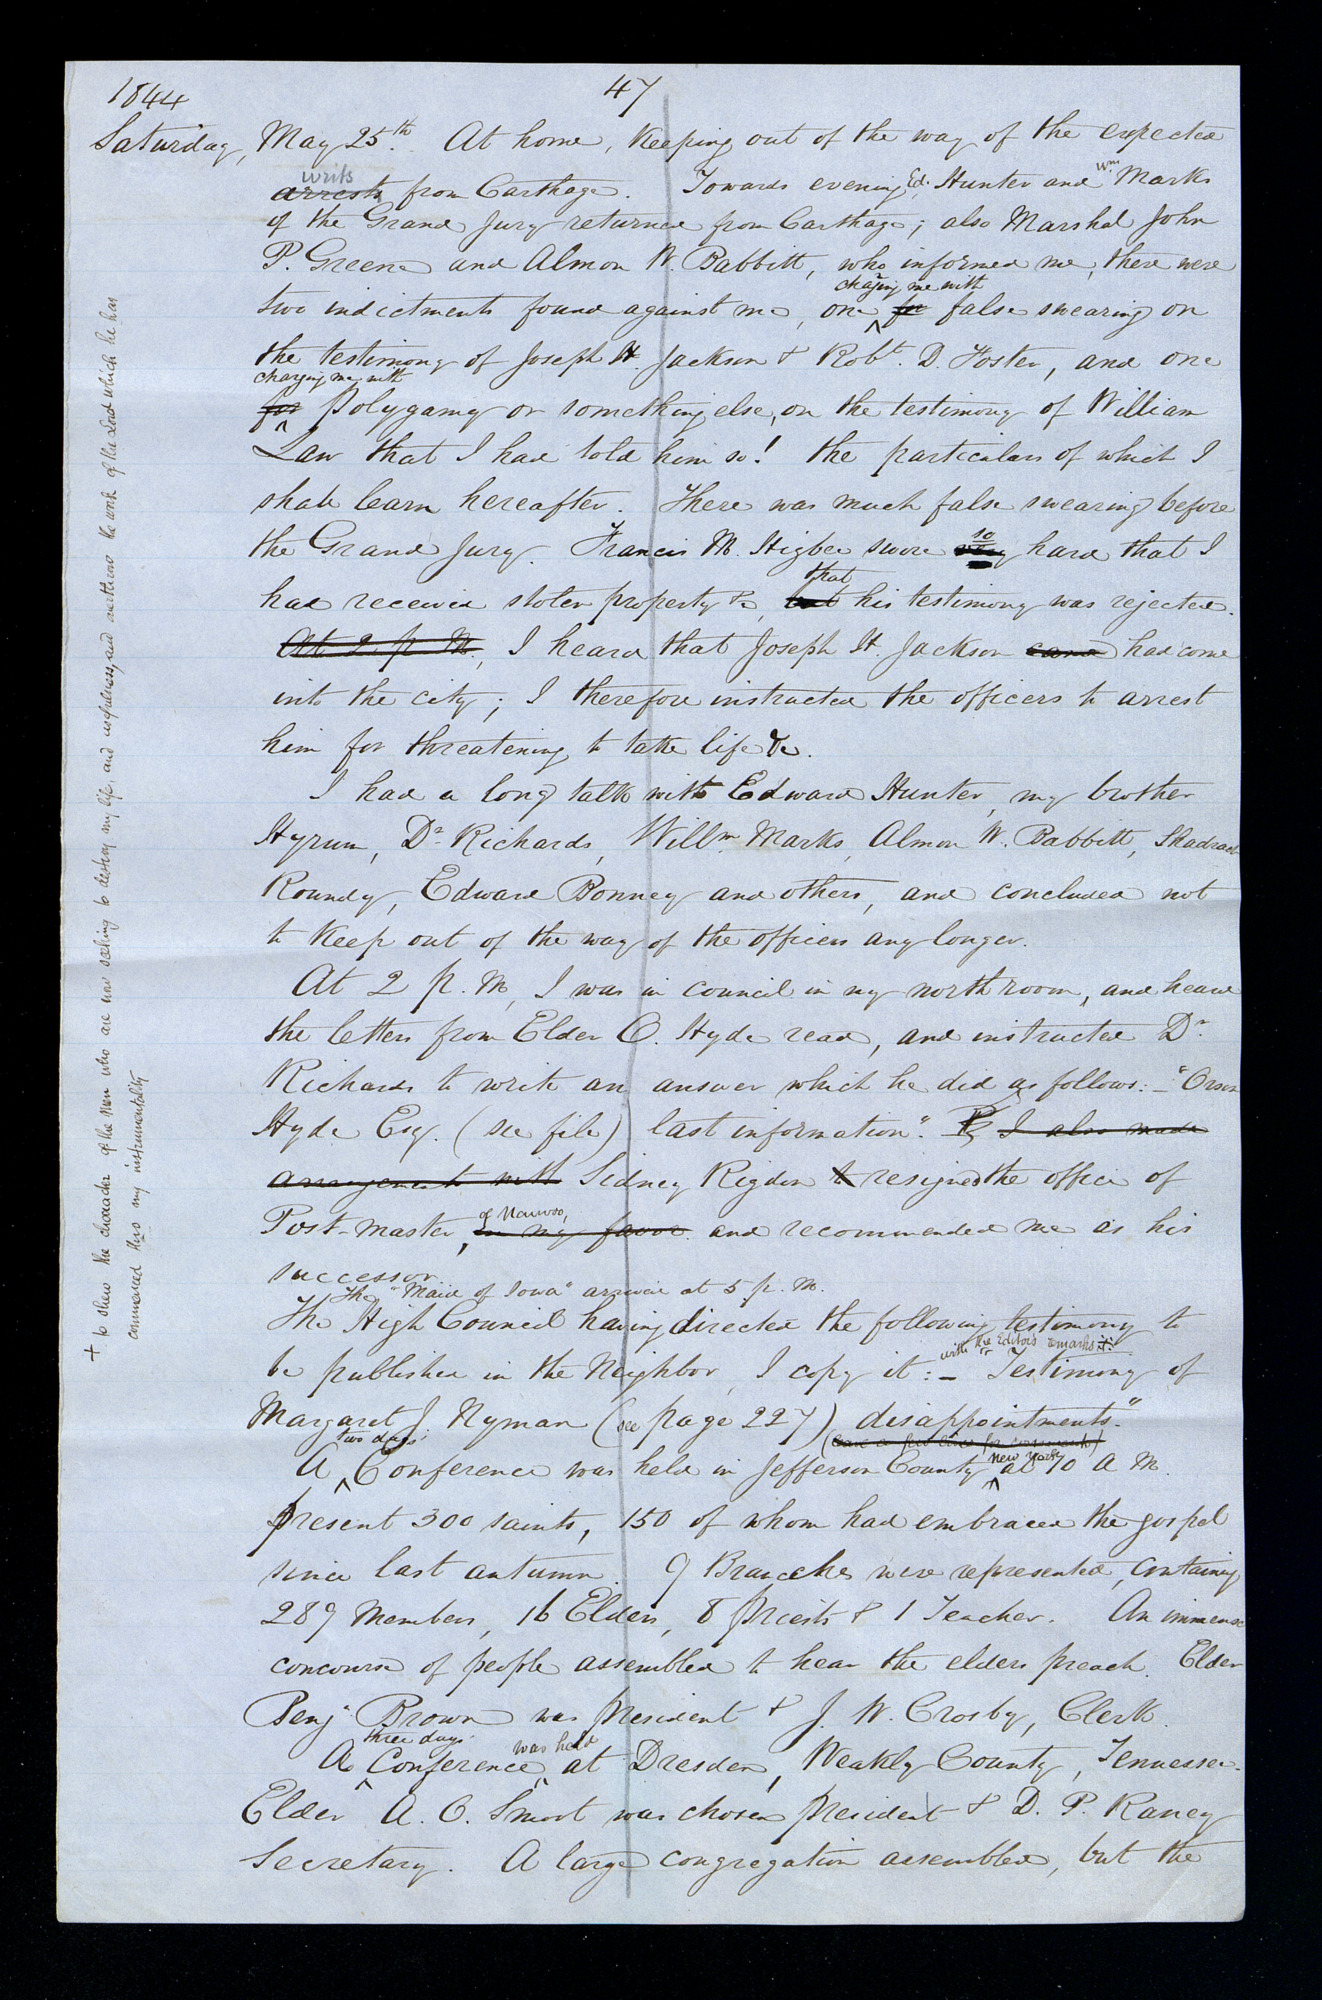 1844
47
Saturday, May 25th. At home, Keeping out of the way of the expected
writs
arrests from Carthage. Towards evening, Ed. Hunter and Wm. Marks
of the Grand Jury returned from Carthage; also Marshal John
P. Greene and Almon W. Babbitt, who informed me, there were
charging me with
two indictments found against me, one for false swearing on
the testimony of Joseph H. Jackson & Robt. D. Foster, and one
charging me with
for Polygamy or something else, on the testimony of William
Law that I had told him so! the particulars of which I
shall learn hereafter. There was much false swearing before
so
the Grand Jury. Francis M. Higbee swore very hard that I
that
had received stolen property &c, but his testimony was rejected.
At 2 p. M., I heard that Joseph H. Jackson came had come
into the city; I therefore instructed the officers to arrest
him for threatening to take life &c.
I had a long talk with Edward Hunter, my brother
Hyrum, Dr. Richards, Willm. Marks, Almon W. Babbitt, Shadrach
Roundy, Edward Bonney and others, and concluded not
to Keep out of the way of the officers any longer.
At 2 p. M, I was in council in my north room, and heard
the letters from Elder O. Hyde read, and instructed Dr.
Richards to write an answer which he did as follows:— "Orson
Hyde Esq. (see file) last information". I also made
arrangements with Sidney Rigdon to resigned the office of
of Nauvoo,
Post-Master, in my favor. and recommended me as his
successor.
The "Maid of Iowa" arrived at 5 p. M.
The High Council having directed the following testimony to
with the Editor's remarks it:
be published in the Neighbor, I copy it:— Testimony of
Margaret J. Nyman (see page 227) disappointments."
(leave a few lines for comments)
two days'
A Conference was held in Jefferson County New York, at 10 A M.
present 300 saints, 150 of whom had embraced the gospel
since last autumn. 9 Branches were represented, containing
289 Members, 16 Elders, 8 Priests & 1 Teacher. An immense
concourse of people assembled to hear the elders preach. Elder
Benj. Brown was President & J. W. Crosby, Clerk.
three days' was held
A Conference at Dresden, Weakly County, Tennessee.
Elder A. O. Smoot was chosen President & D. P. Raney
Secretary. A large congregation assembled, but the
+ to shew the character of the men who are now seeking to destroy my life, and usefulness, and overthrow the work of the Lord which he has
commenced thro my instrumentality